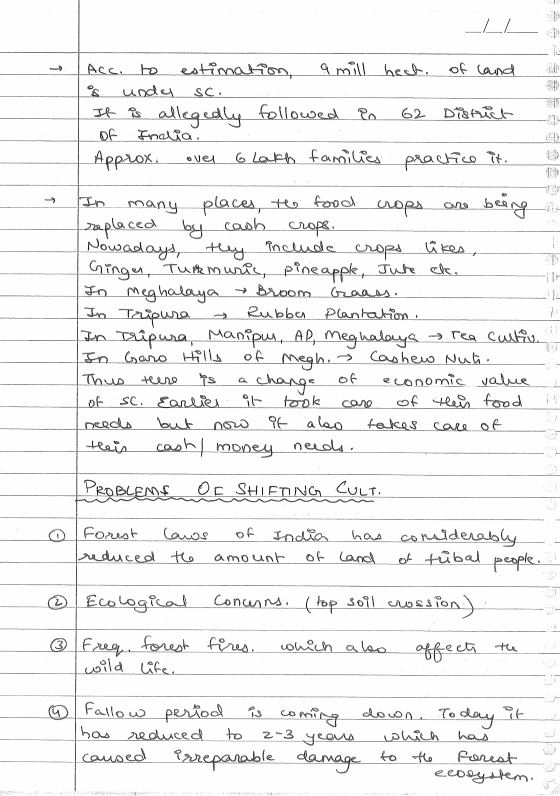 _/_/_
→ Acc. to estimation, 9 mill hect. of land
is under SC.
It is allegedly followed in 62 District
of India.
Approx. over 6 Lakh families practice it.
→ In many places, the food crops are being
replaced by cash crops.
Nowadays, they include crops likes,
Ginger, Turmuric, pineapple, Jute etc.
In Meghalaya → Broom Graass.
In Tripura → Rubber Plantation.
In Tripura, Manipur, AP, Meghalaya → Tea Cultiv.
In Garo Hills of Megh. → Cashew Nuts.
Thus there is a change of economic value
of SC. Earlier it took care of their food
needs but now it also takes care of
their cash/money needs.
PROBLEMS OF SHIFTING CULT.
① Forest laws of India has considerably
reduced the amount of land of tribal people.
② Ecological Concerns. (top soil erossion)
③ Freq. forest fires. which also affects the
wild life.
④ Fallow period is coming down. Today it
has reduced to 2-3 years which has
caused irreparable damage to the Forest
ecosystem.